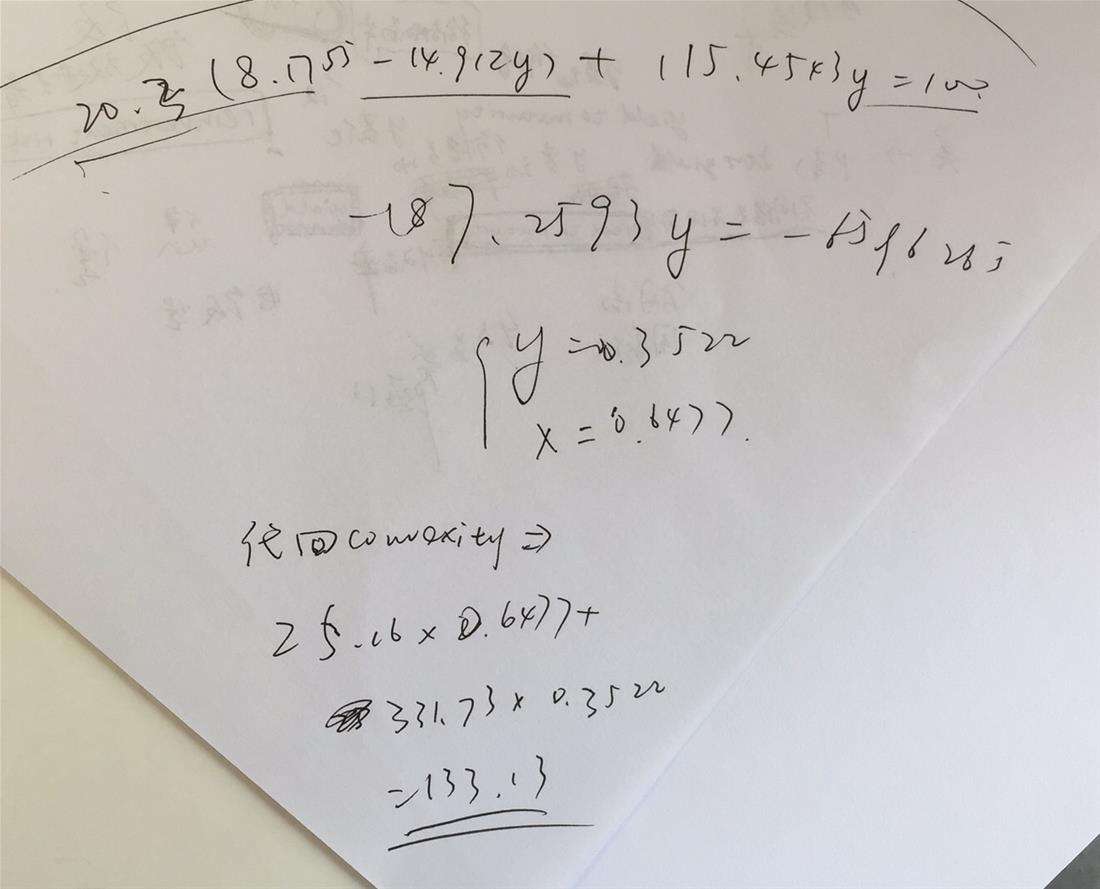 20.3 (8.1755 - 14.912y) + 115.4543y = 100
-187.2593y = -65.96265
{ y = 0.3522
x = 0.6477.
代回convexity ⇒
25.16 × 0.6477 +
331.73 × 0.3522
= 133.13